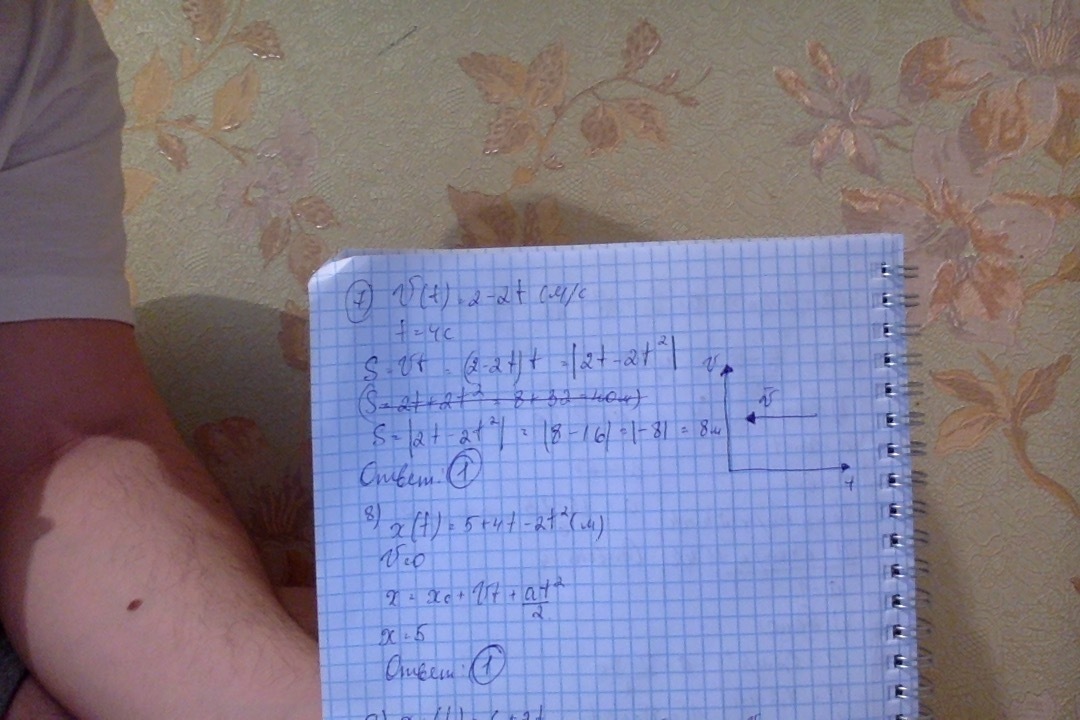 7) V(t) = 2-2t (м/с
t = 4с
S = Vt = (2-2t)t = |2t-2t²|
(S = 2t+2t² = 8+32 = 40м)
S = |2t-2t²| = |8-16| = |-8| = 8м
Ответ: 1
V
v̄
t
8) x(t) = 5+4t-2t²(м)
V=0
x = x₀ + Vt + at²/2
x = 5
Ответ: 1